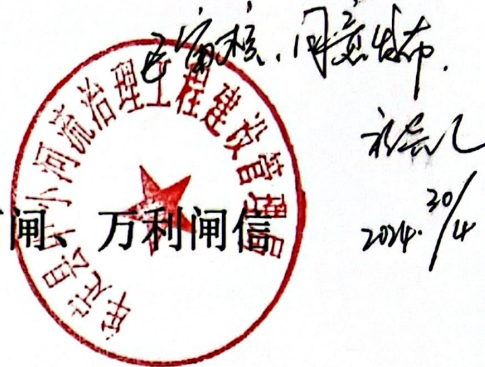 已审核、同意发布.
2024. 30/4
中小河流治理工程建设管理局
闸、万利闸信